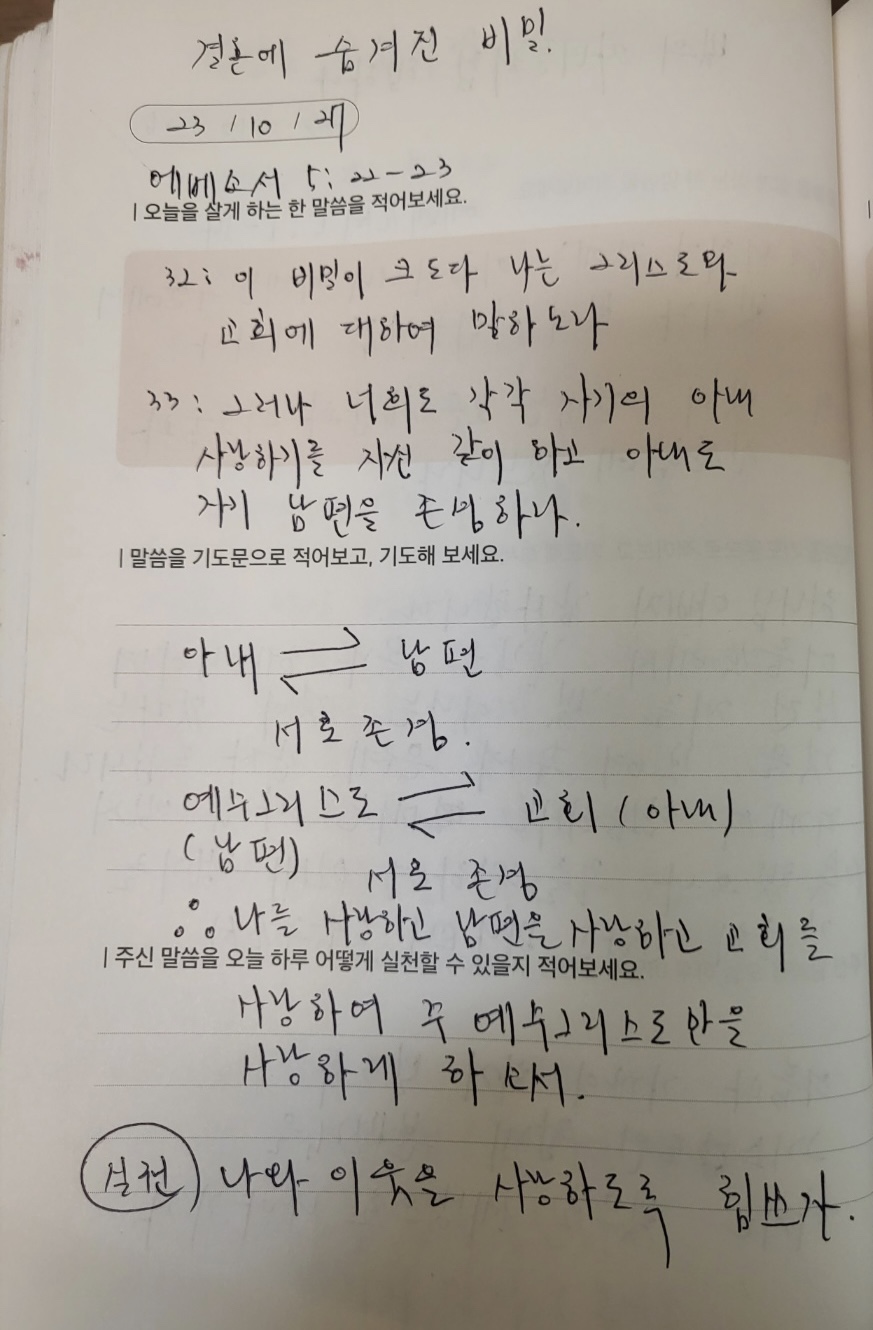 결혼에 숨겨진 비밀.
23 / 10 / 27
에베소서 5: 22-23
| 오늘을 살게 하는 한 말씀을 적어보세요.
32: 이 비밀이 크도다 나는 그리스도와
교회에 대하여 말하노라
33: 그러나 너희도 각각 자기의 아내
사랑하기를 자신 같이 하고 아내도
자기 남편을 존경하라.
| 말씀을 기도문으로 적어보고, 기도해 보세요.
아내 ⇌ 남편
서로 존경.
예수그리스도 ⇌ 교회 (아내)
(남편)
서로 존경
∴ 나를 사랑하고 남편을 사랑하고 교회를
| 주신 말씀을 오늘 하루 어떻게 실천할 수 있을지 적어보세요.
사랑하여 주 예수그리스도만을
사랑하게 하소서.
실천) 나와 이웃을 사랑하도록 힘쓰자.